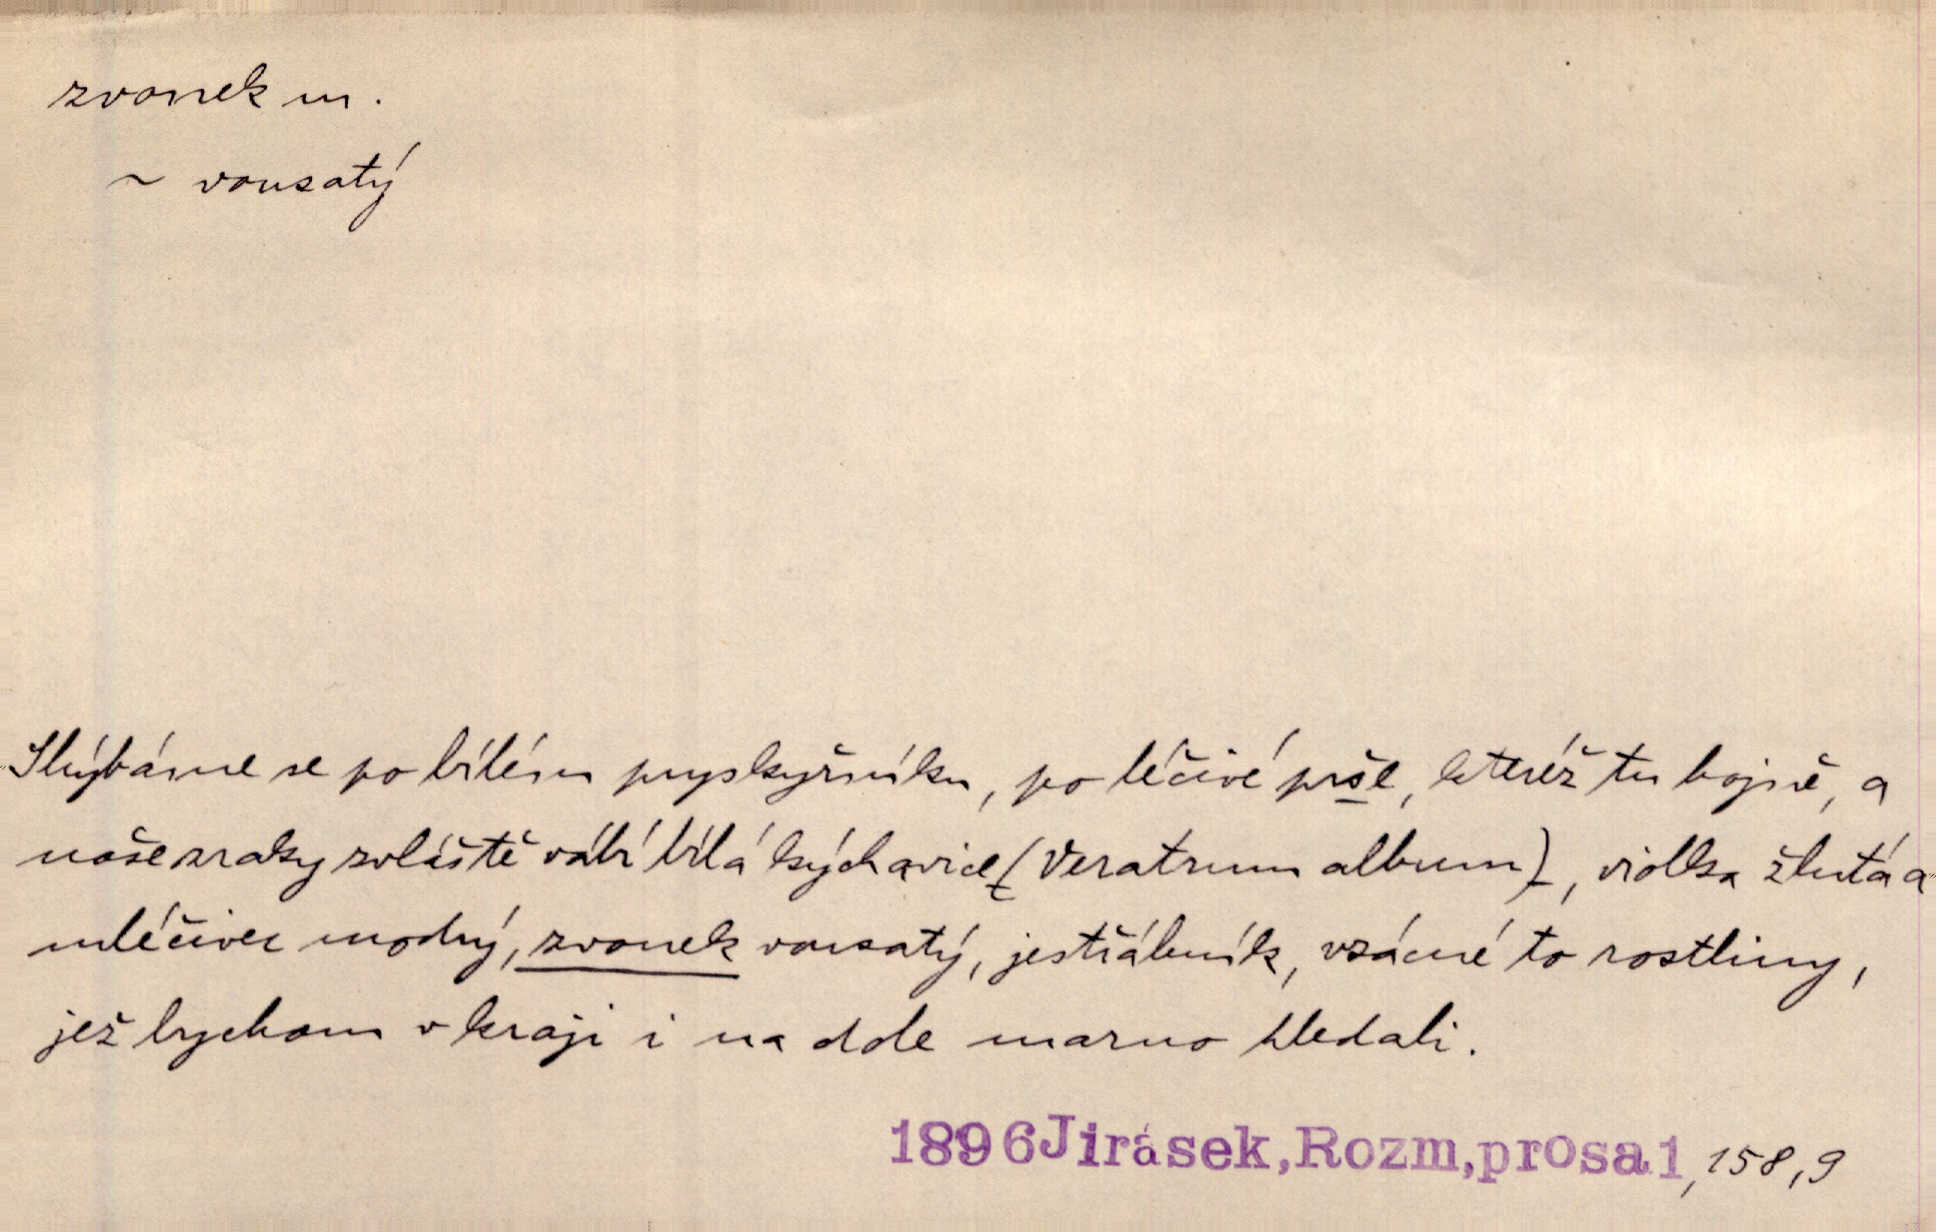 zvonek m.
~ vousatý
Shýbáme se po bílém pryskyřníku, po léčivé prše, kteréž tu hojně, a
naše zraky zvláště vábí bílá kýchavice (Veratrum album), violka žlutá a
mléčivec modrý, zvonek vousatý, jestřábník, vzácné to rostliny,
jež bychom v kraji i na dole marno hledali.
1896 Jirásek, Rozm, prosa 1, 158, 9